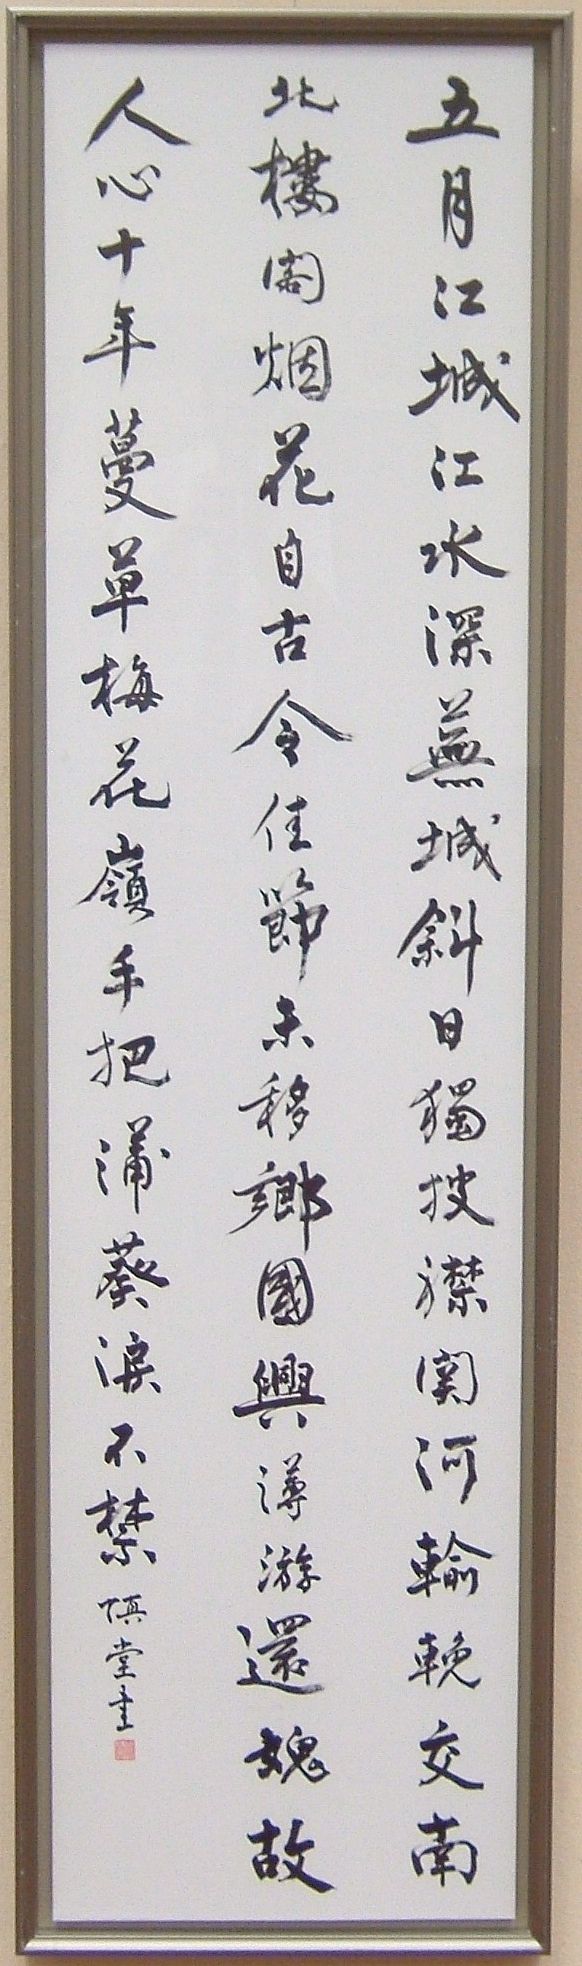 五月江城江水深蕪城斜日獨披襟関河輸輓交南
北樓閣烟花自古今佳節未移鄉國興薄游還愧故
人心十年蔓草梅花嶺手把蒲葵淚不禁
堂書